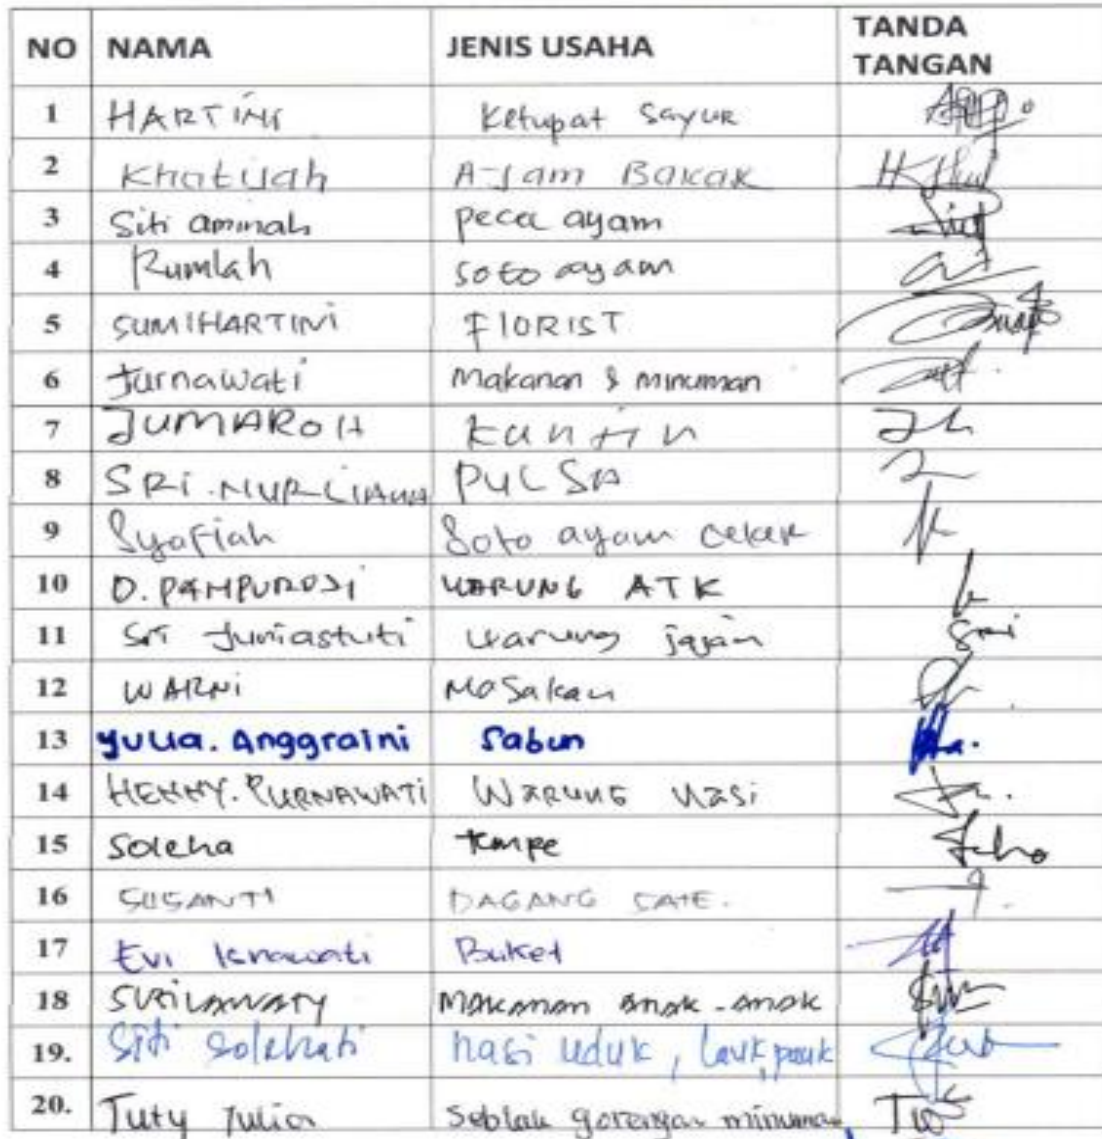 NO NAMA JENIS USAHA TANDA TANGAN
1 HARTINI Ketupat Sayur
2 Khatijah Ayam Bakar
3 Siti aminah pecel ayam
4 Rumlah soto ayam
5 SUMIHARTINI FlORIST
6 Jurnawati Makanan & minuman
7 JUMAROH Kantin
8 SRi. NURLIANA PULSA
9 Syafiah Soto ayam ceker
10 WARUNG ATK
11 Sri Juniastuti warung jajan Sri
12 WARNi Masakan
13 yulia. Anggraini Sabun
14 HENNY. PURNAWATI WARUNG NASi
15 Soleha Tempe
16 SUSANTI DAGANG SATE.
17 Evi Isnawati Buket
18 SUSILAWATY MAKANAN ANAK-ANAK
19. Siti Solehati nasi uduk, lauk pauk
20. Tuty Yulia Seblak gorengan minuman,